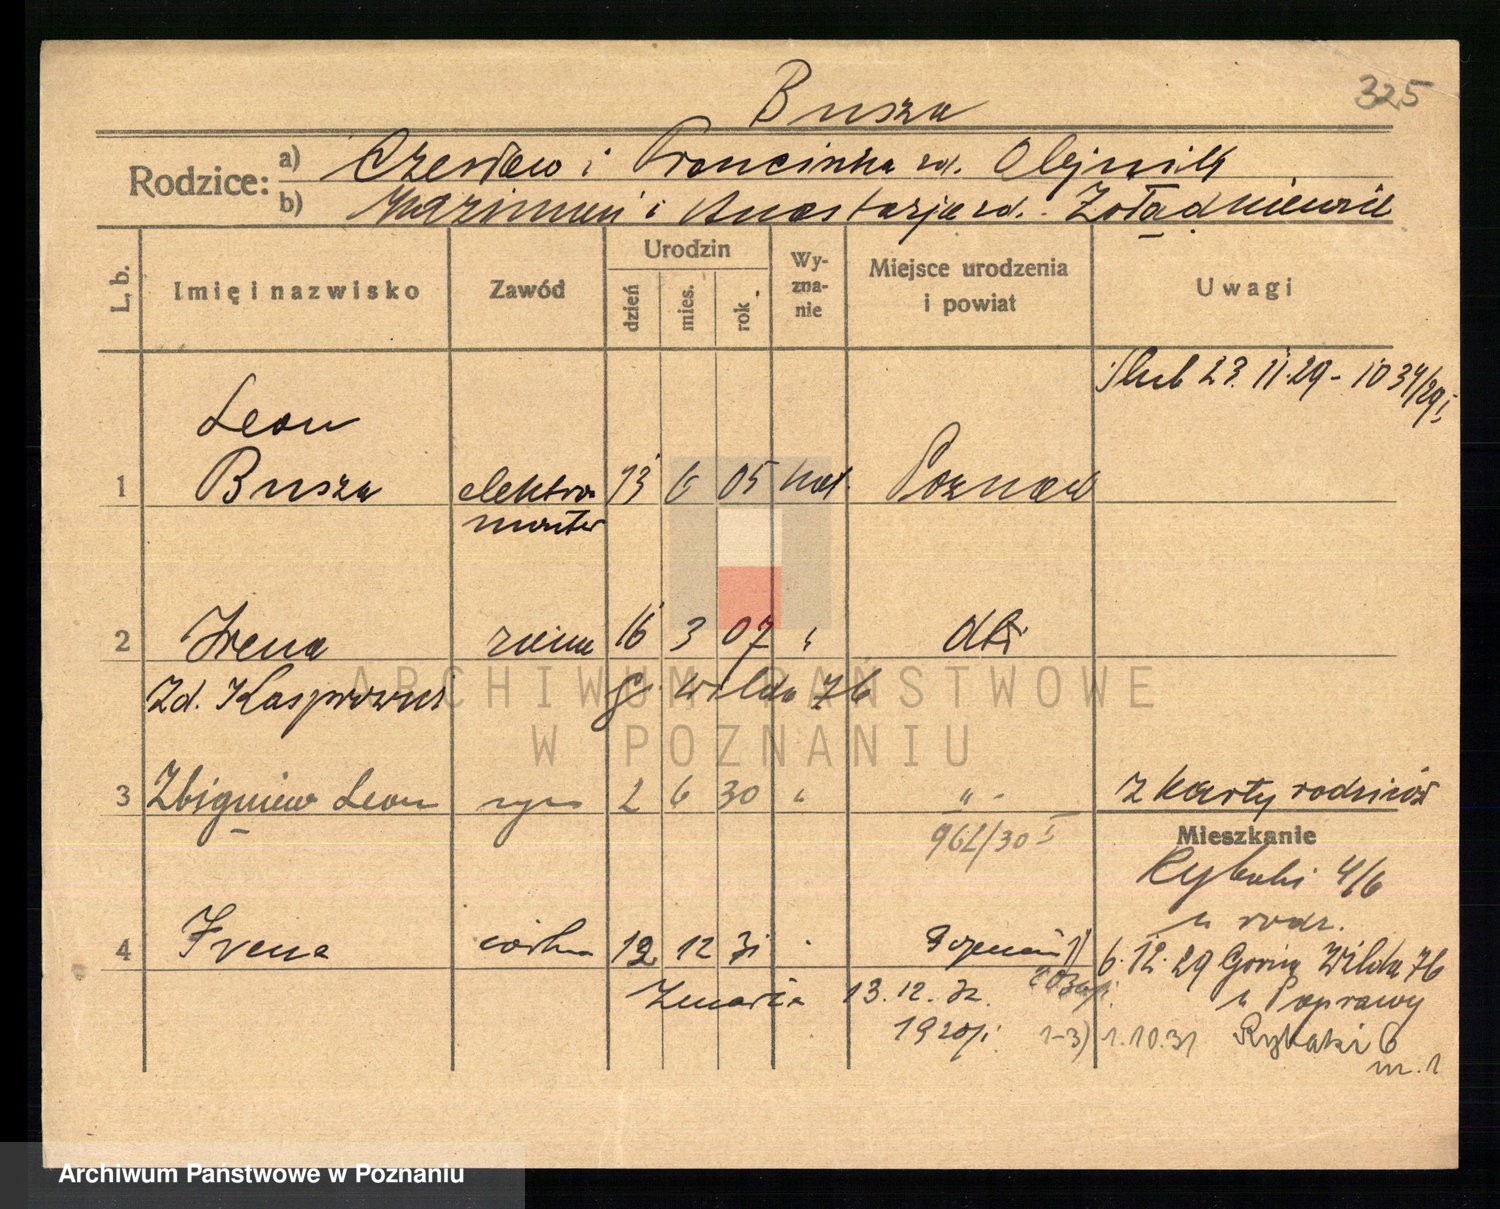 Busza
325
Rodzice:
a) Czesław i Franciszka zd. Olejnik
b) Maksimian i Anastazja zd. Żołądkiewicz
L. b.
Imię i nazwisko
Zawód
Urodzin
dzień
mies.
rok
Wy-
zna-
nie
Miejsce urodzenia
i powiat
Uwagi
Ślub 23. 11. 29 - 1034/29 I.
Leon
1 Busza elektro 13 6 05 kat. Poznań
monter
2 Irena żona 16 3 07 " dtt
Zd. Kasprowicz G. Wilda 76
3 Zbigniew Leon syn 2 6 30 " " - z karty rodziców
962/30 I
Mieszkanie
Rybaki 4/6
u rodz.
4 Irena córka 12 12 31 . Poznań
6. 12. 29 Górna Wilda 76
Zmarła 13. 12. 32.
u Poprawy
1920/
1-3) 1. 10. 31 Rybaki 6
m. 1
ARCHIWUM PAŃSTWOWE
W POZNANIU
Archiwum Państwowe w Poznaniu